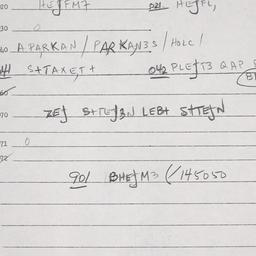 20 HEJFM7 021 HEJFL,
30 0
40 APARKAN / PARKAN3S / HOLC /
S+TAXE,T+ 042 PLEJT3 QAP
70 ZEJ S+TEJ3N LEB+ S+TEJN
71 0
72
901 BHEJM3 (/145050